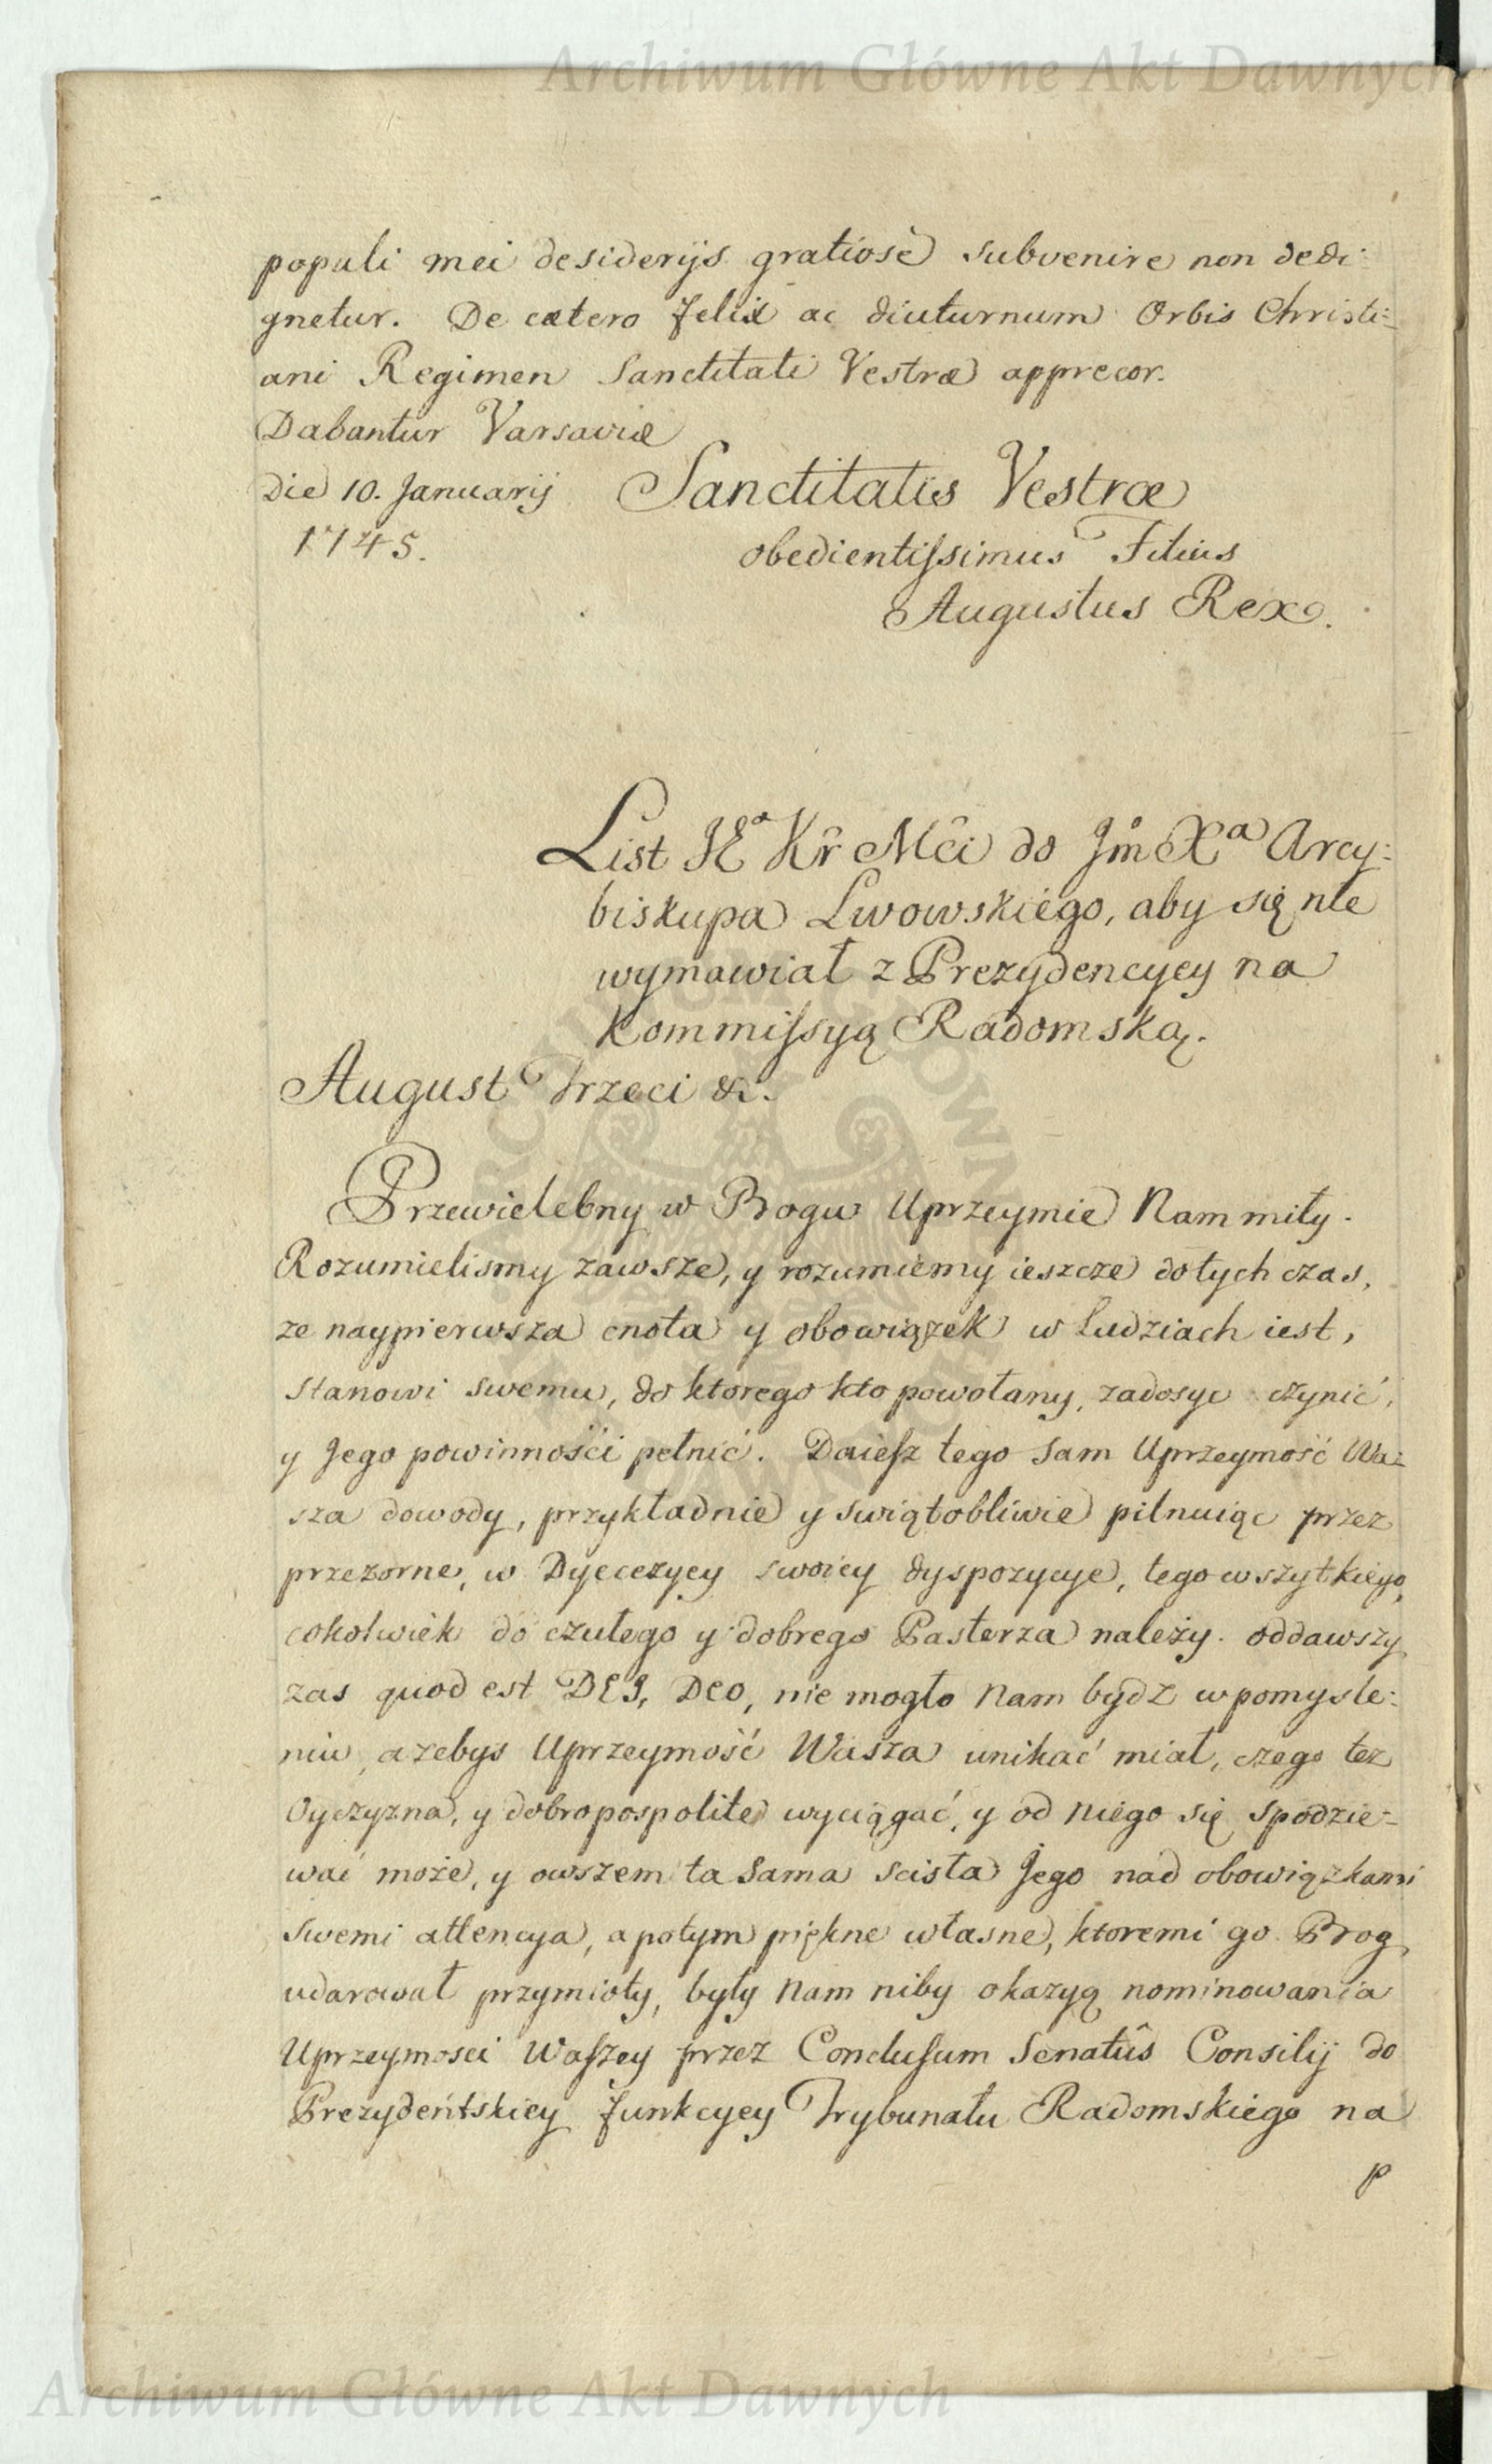 Archiwum Główne Akt Dawnych
populi mei desiderijs gratiosè subvenire non dedi:
gnetur. De cætero felix ac diuturnum Orbis Christi:
ani Regimen Sanctitati Vestræ apprecor.
Dabantur Varsaviæ
Die 10. Januarij
1745.
Sanctitatis Vestræ
obedientiſsimus Filius
Augustus Rex.
List JKa Kr̂ Mĉi do Jm̊ Xa Arcy:
biskupa Lwowskiego, aby się nie
wymawiał z Prezydencyey na
Kommiſsyą Radomską.
August Trzeci &c.
Przewielebny w Bogu Uprzeymie Nam miły.
Rozumielismy zawsze, y rozumiemy ieszcze dotych czas,
ze naypierwsza cnota y obowiązek w Ludziach iest,
stanowi swemu, do ktorego kto powołany, zadosyc czynić,
y Jego powinnośći pełnić. Daieſz tego sam Uprzeymość Wa:
sza dowody, przykładnie y swiątobliwie pilnuiąc przez
przezorne, w Dyecezyey swoiey dyspozycye, tego wszytkiego,
cokolwiek do czułego y dobrego Pasterza należy. oddawszy
zas quod est DEJ, DEO, nie mogło Nam bydz w pomysle:
niu, azebys Uprzeymość Wasza unikać miał, czego tez
Oyczyzna, y dobro pospolite wyciągać, y od Niego się spodzie:
wać może, y owszem ta sama scisła Jego nad obowiązkami
swemi attencya, a potym piękne własne, ktoremi go Bog
udarował przymioty, były Nam niby okazyą nominowania
Uprzeymosci Waſzey przez Concluſum Senatûs Consilij do
Prezydeńtskiey funkcyey Trybunału Radomskiego na
p
Archiwum Główne Akt Dawnych